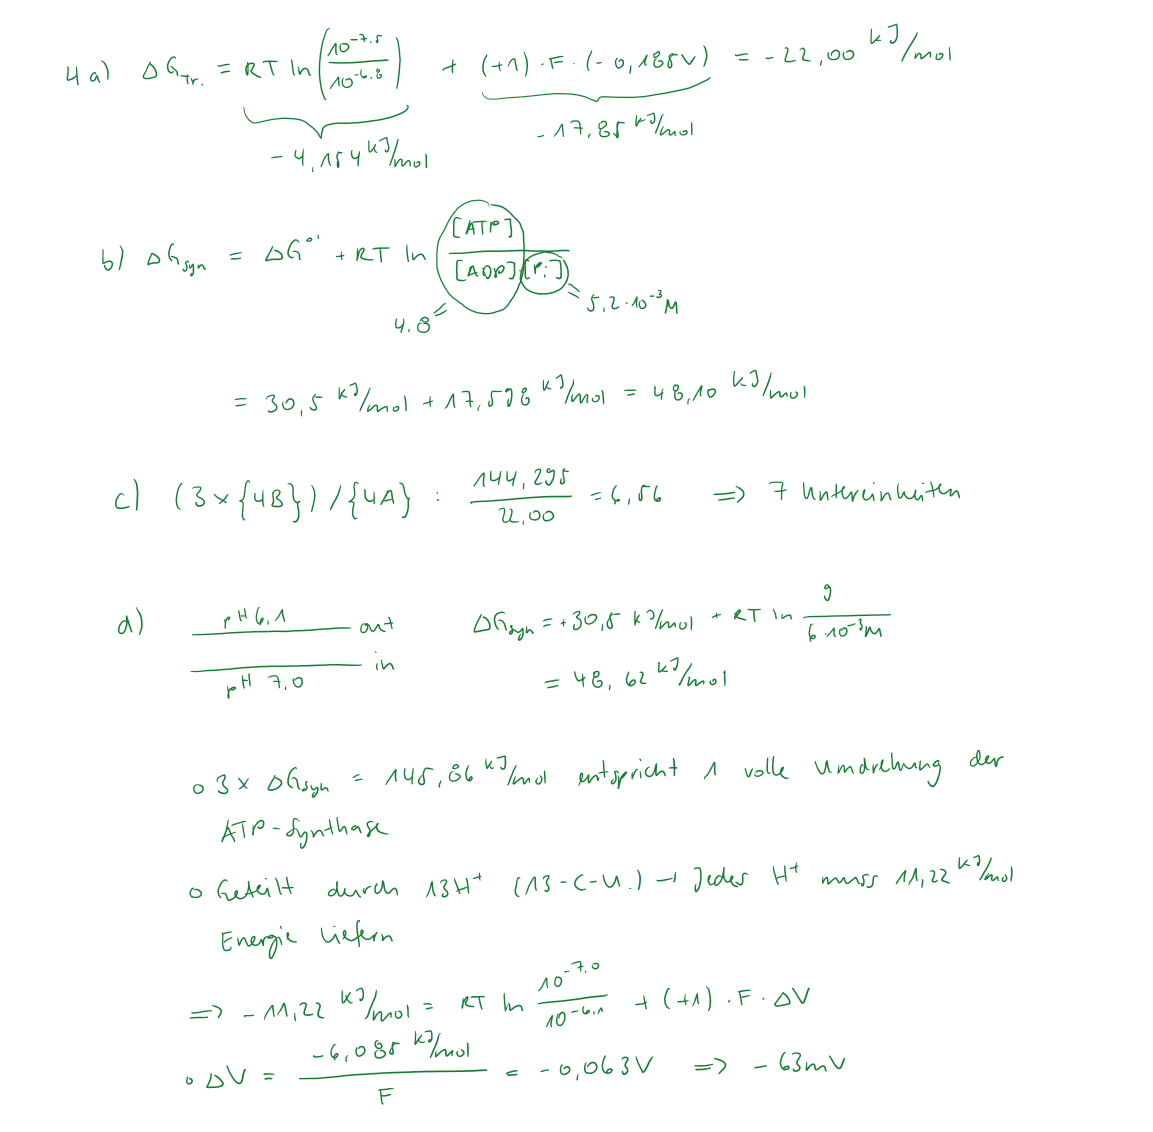 4a) ΔG_Tr. = RT ln(10^-7.5 / 10^-6.8) + (+1) · F · (-0,185V) = -22,00 kJ/mol
-4,154 kJ/mol
-17,85 kJ/mol
b) ΔG_syn = ΔG°' + RT ln [ATP] / [ADP] [Pi]
4.8 = = 5,2 · 10^-3 M
= 30,5 kJ/mol + 17,598 kJ/mol = 48,10 kJ/mol
c) (3 × {4B}) / {4A} : 144,295 / 22,00 = 6,56 ⇒ 7 Untereinheiten
d) pH 6,1 out
in
pH 7,0
ΔG_syn = +30,5 kJ/mol + RT ln 9 / 6·10^-3 M
= 48,62 kJ/mol
o 3 × ΔG_syn = 145,86 kJ/mol entspricht 1 volle Umdrehung der
ATP-Synthase
o Geteilt durch 13H⁺ (13-C-U.) → Jedes H⁺ muss 11,22 kJ/mol
Energie liefern
⇒ -11,22 kJ/mol = RT ln 10^-7,0 / 10^-6,1 + (+1) · F · ΔV
o ΔV = -6,085 kJ/mol / F = -0,063V ⇒ -63mV